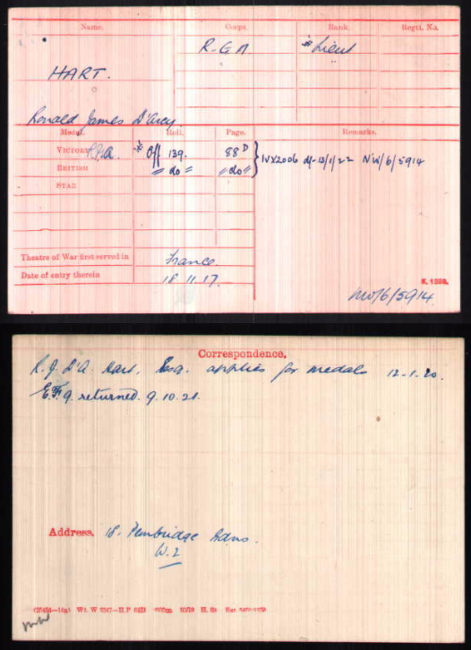 Name. Corps. Rank. Regtl. No.
R.G.A * Lieut
HART.
Ronald James D'Arcy.
Medal. Roll. Page. Remarks.
VICTORY R.G.A. * Off 139. 88D IVX2006 df-13/1/22 NW/6/5914
BRITISH " do " " do "
STAR
Theatre of War first served in France
Date of entry therein 18.11.17.
K. 1380.
NW/6/5914.
Correspondence.
R. J. D'A. Hart, Esq. applies for medals 12-1-20.
returned. 9.10.21.
Address. 18. Pembridge Gdns.
W.2